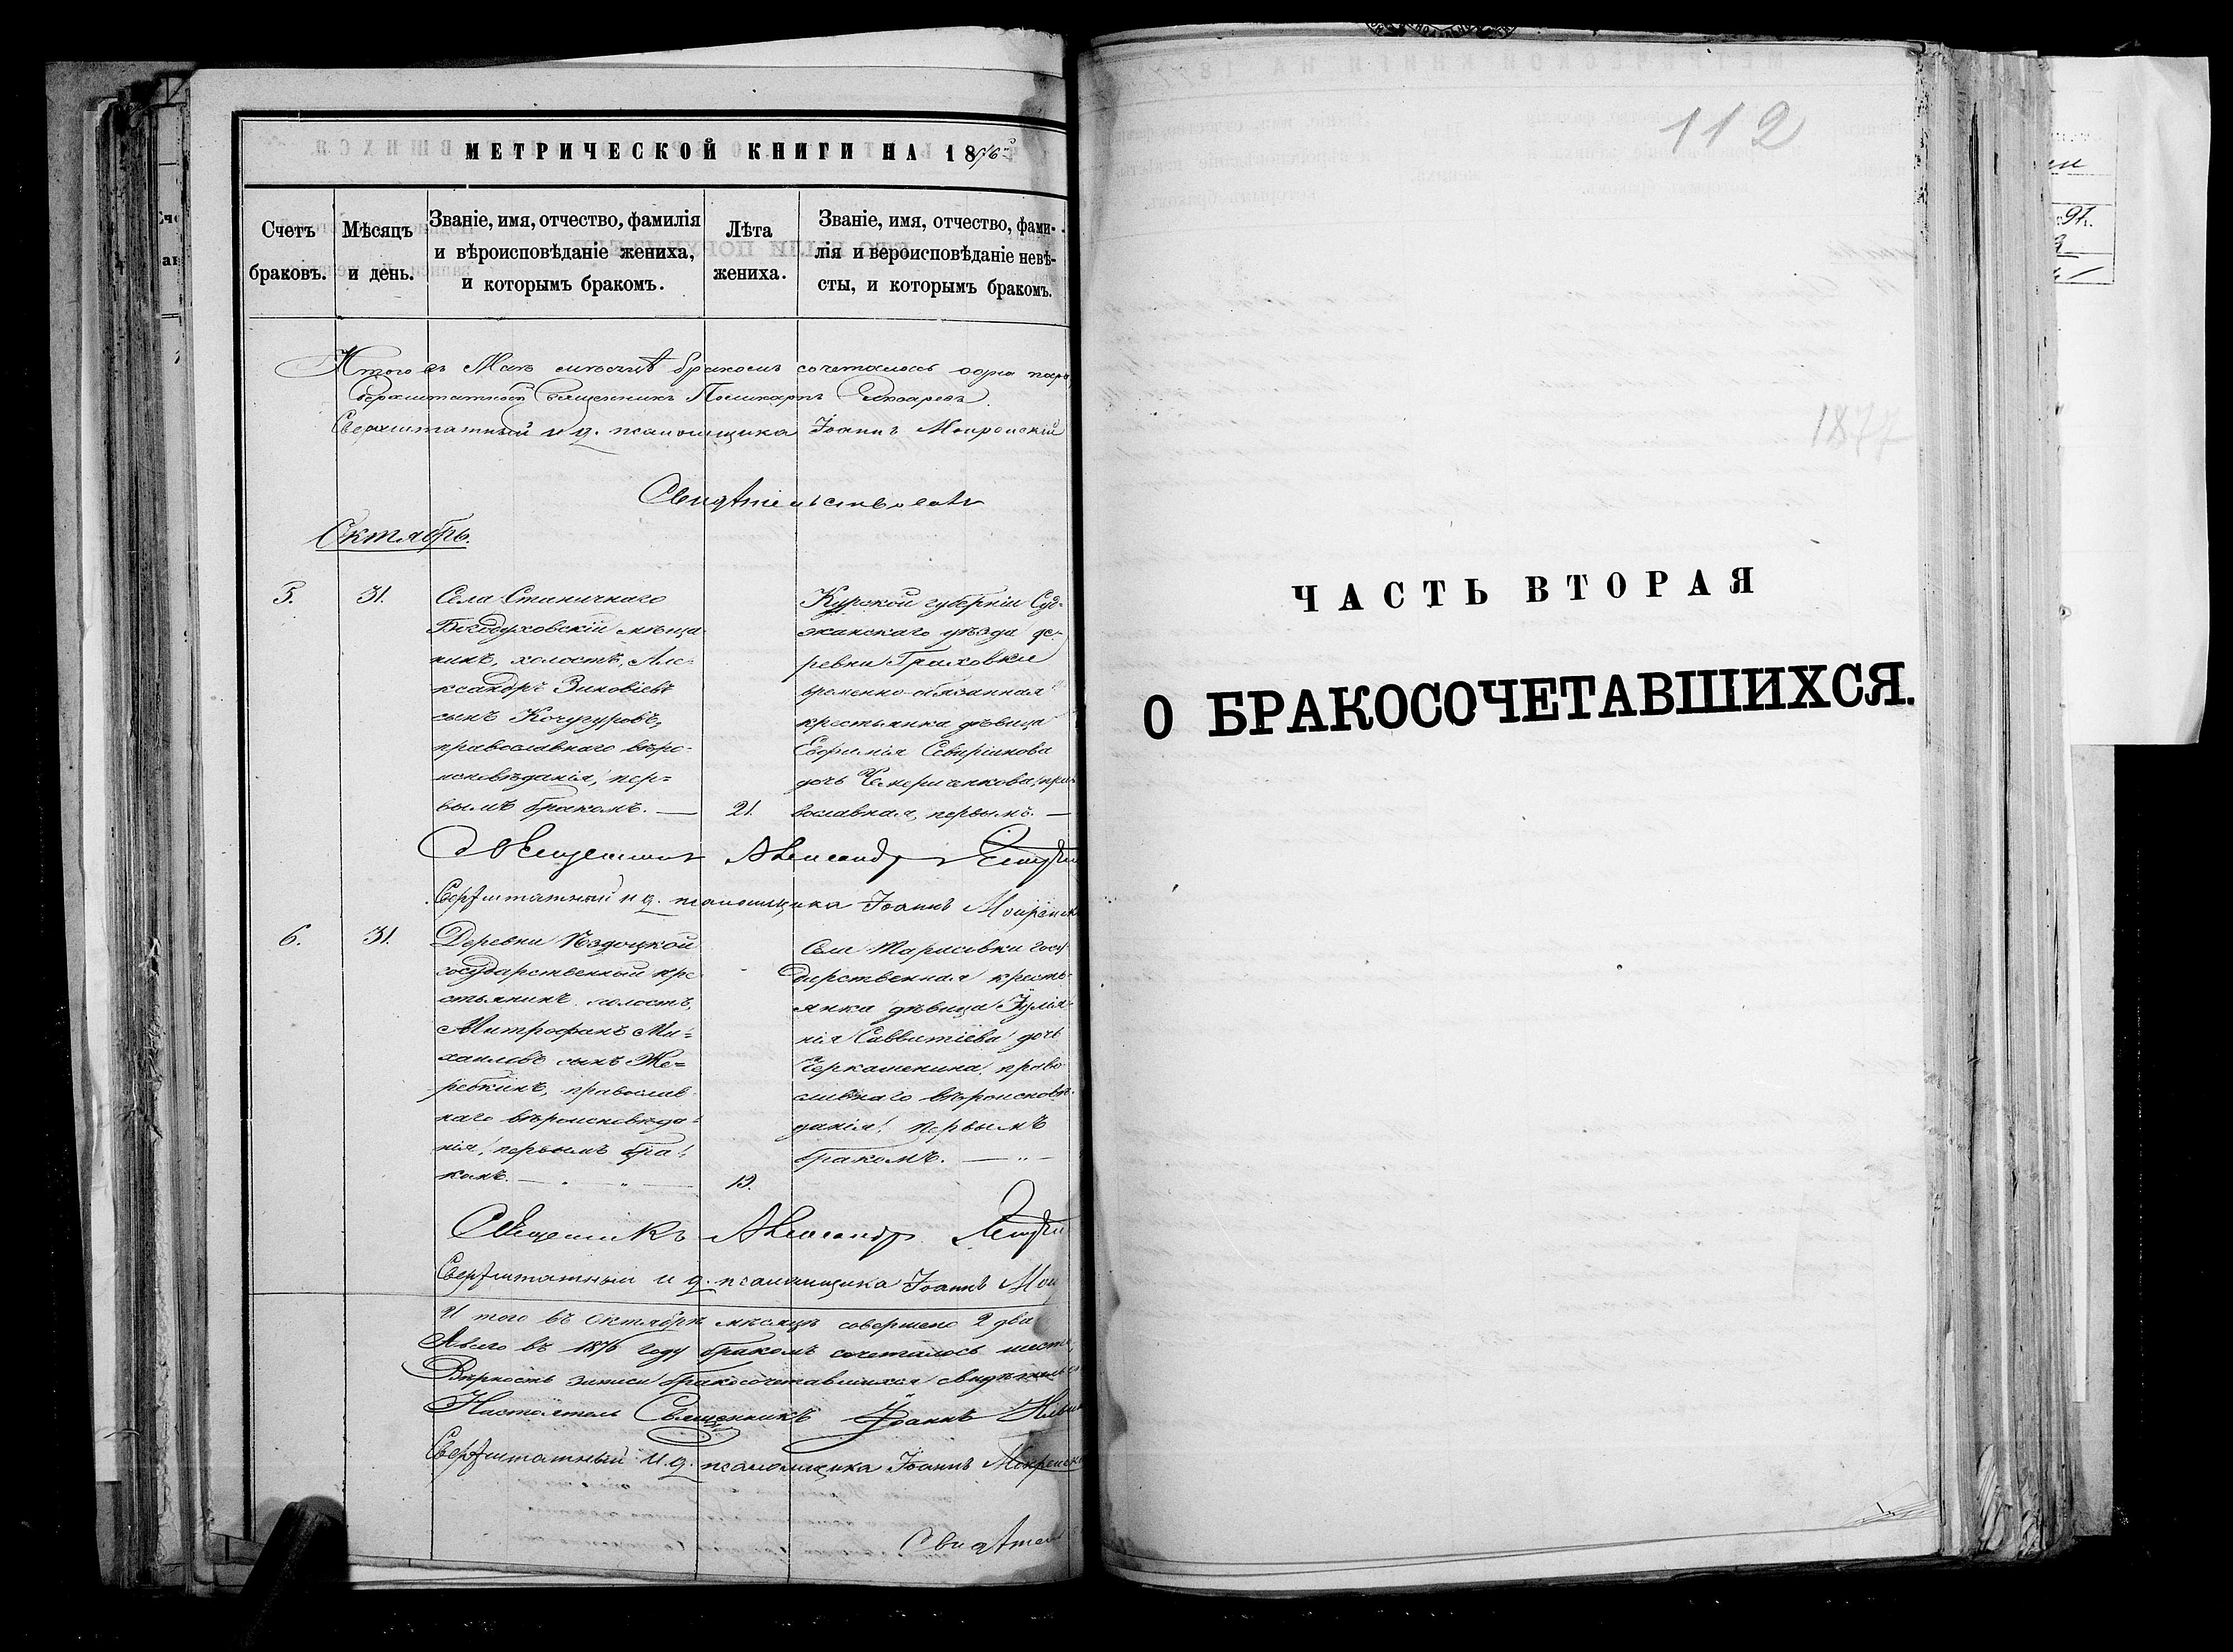 МЕТРИЧЕСКОЙ КНИГИ НА 1876
Счетъ браковъ.
Мѣсяцъ и день.
Званіе, имя, отчество, фамилія и вѣроисповѣданіе жениха, и которымъ бракомъ.
Лѣта жениха.
Званіе, имя, отчество, фами-
лія и вероисповѣданіе невѣ-
сты, и которымъ бракомъ.
Итого въ Маѣ мѣсяцѣ бракомъ сочеталось одна пара
Сверхштатный Священникъ Поликарпъ
Сверхштатный и д. псаломщика Іоаннъ
Октябрь.
5.
31.
Села Станичнаго
Богодуховскій мѣща-
нинъ, холостъ, Але-
ксандръ Зиновіевъ
сынъ Кочугуровъ,
православнаго вѣро-
исповѣданія, пер-
вымъ бракомъ.
21.
Курской губерніи Суд-
жанскаго уѣзда де-
ревни Граховки
временно-обязанная
крестьянка дѣвица
Евфимія
дочь пра-
вославная, первымъ.
Священникъ Александръ
Сверхштатный и д. псаломщика Іоаннъ
6.
31.
Деревни
государственный кре-
стьянинъ холостъ,
Митрофанъ Ми-
хаиловъ сынъ Же-
ребкинъ, православ-
наго вѣроисповѣда-
нія, первымъ бра-
комъ.
19.
Села Тарасовки госу-
дарственная кресть-
янка дѣвица Іуліа-
нія Савватіева дочь
Черкашенина, право-
славнаго вѣроисповѣ-
данія, первымъ
бракомъ.
Священникъ Александръ
Сверхштатный и д. псаломщика Іоаннъ
И того въ Октябрѣ мѣсяцѣ совершено 2 два
А всего въ 1876 году бракомъ сочеталось шесть
Вѣрность записи бракосочетавшихся
Настоятель Священникъ Іоаннъ
Сверхштатный И. д. псаломщика Іоаннъ
112
1877
ЧАСТЬ ВТОРАЯ
О БРАКОСОЧЕТАВШИХСЯ.